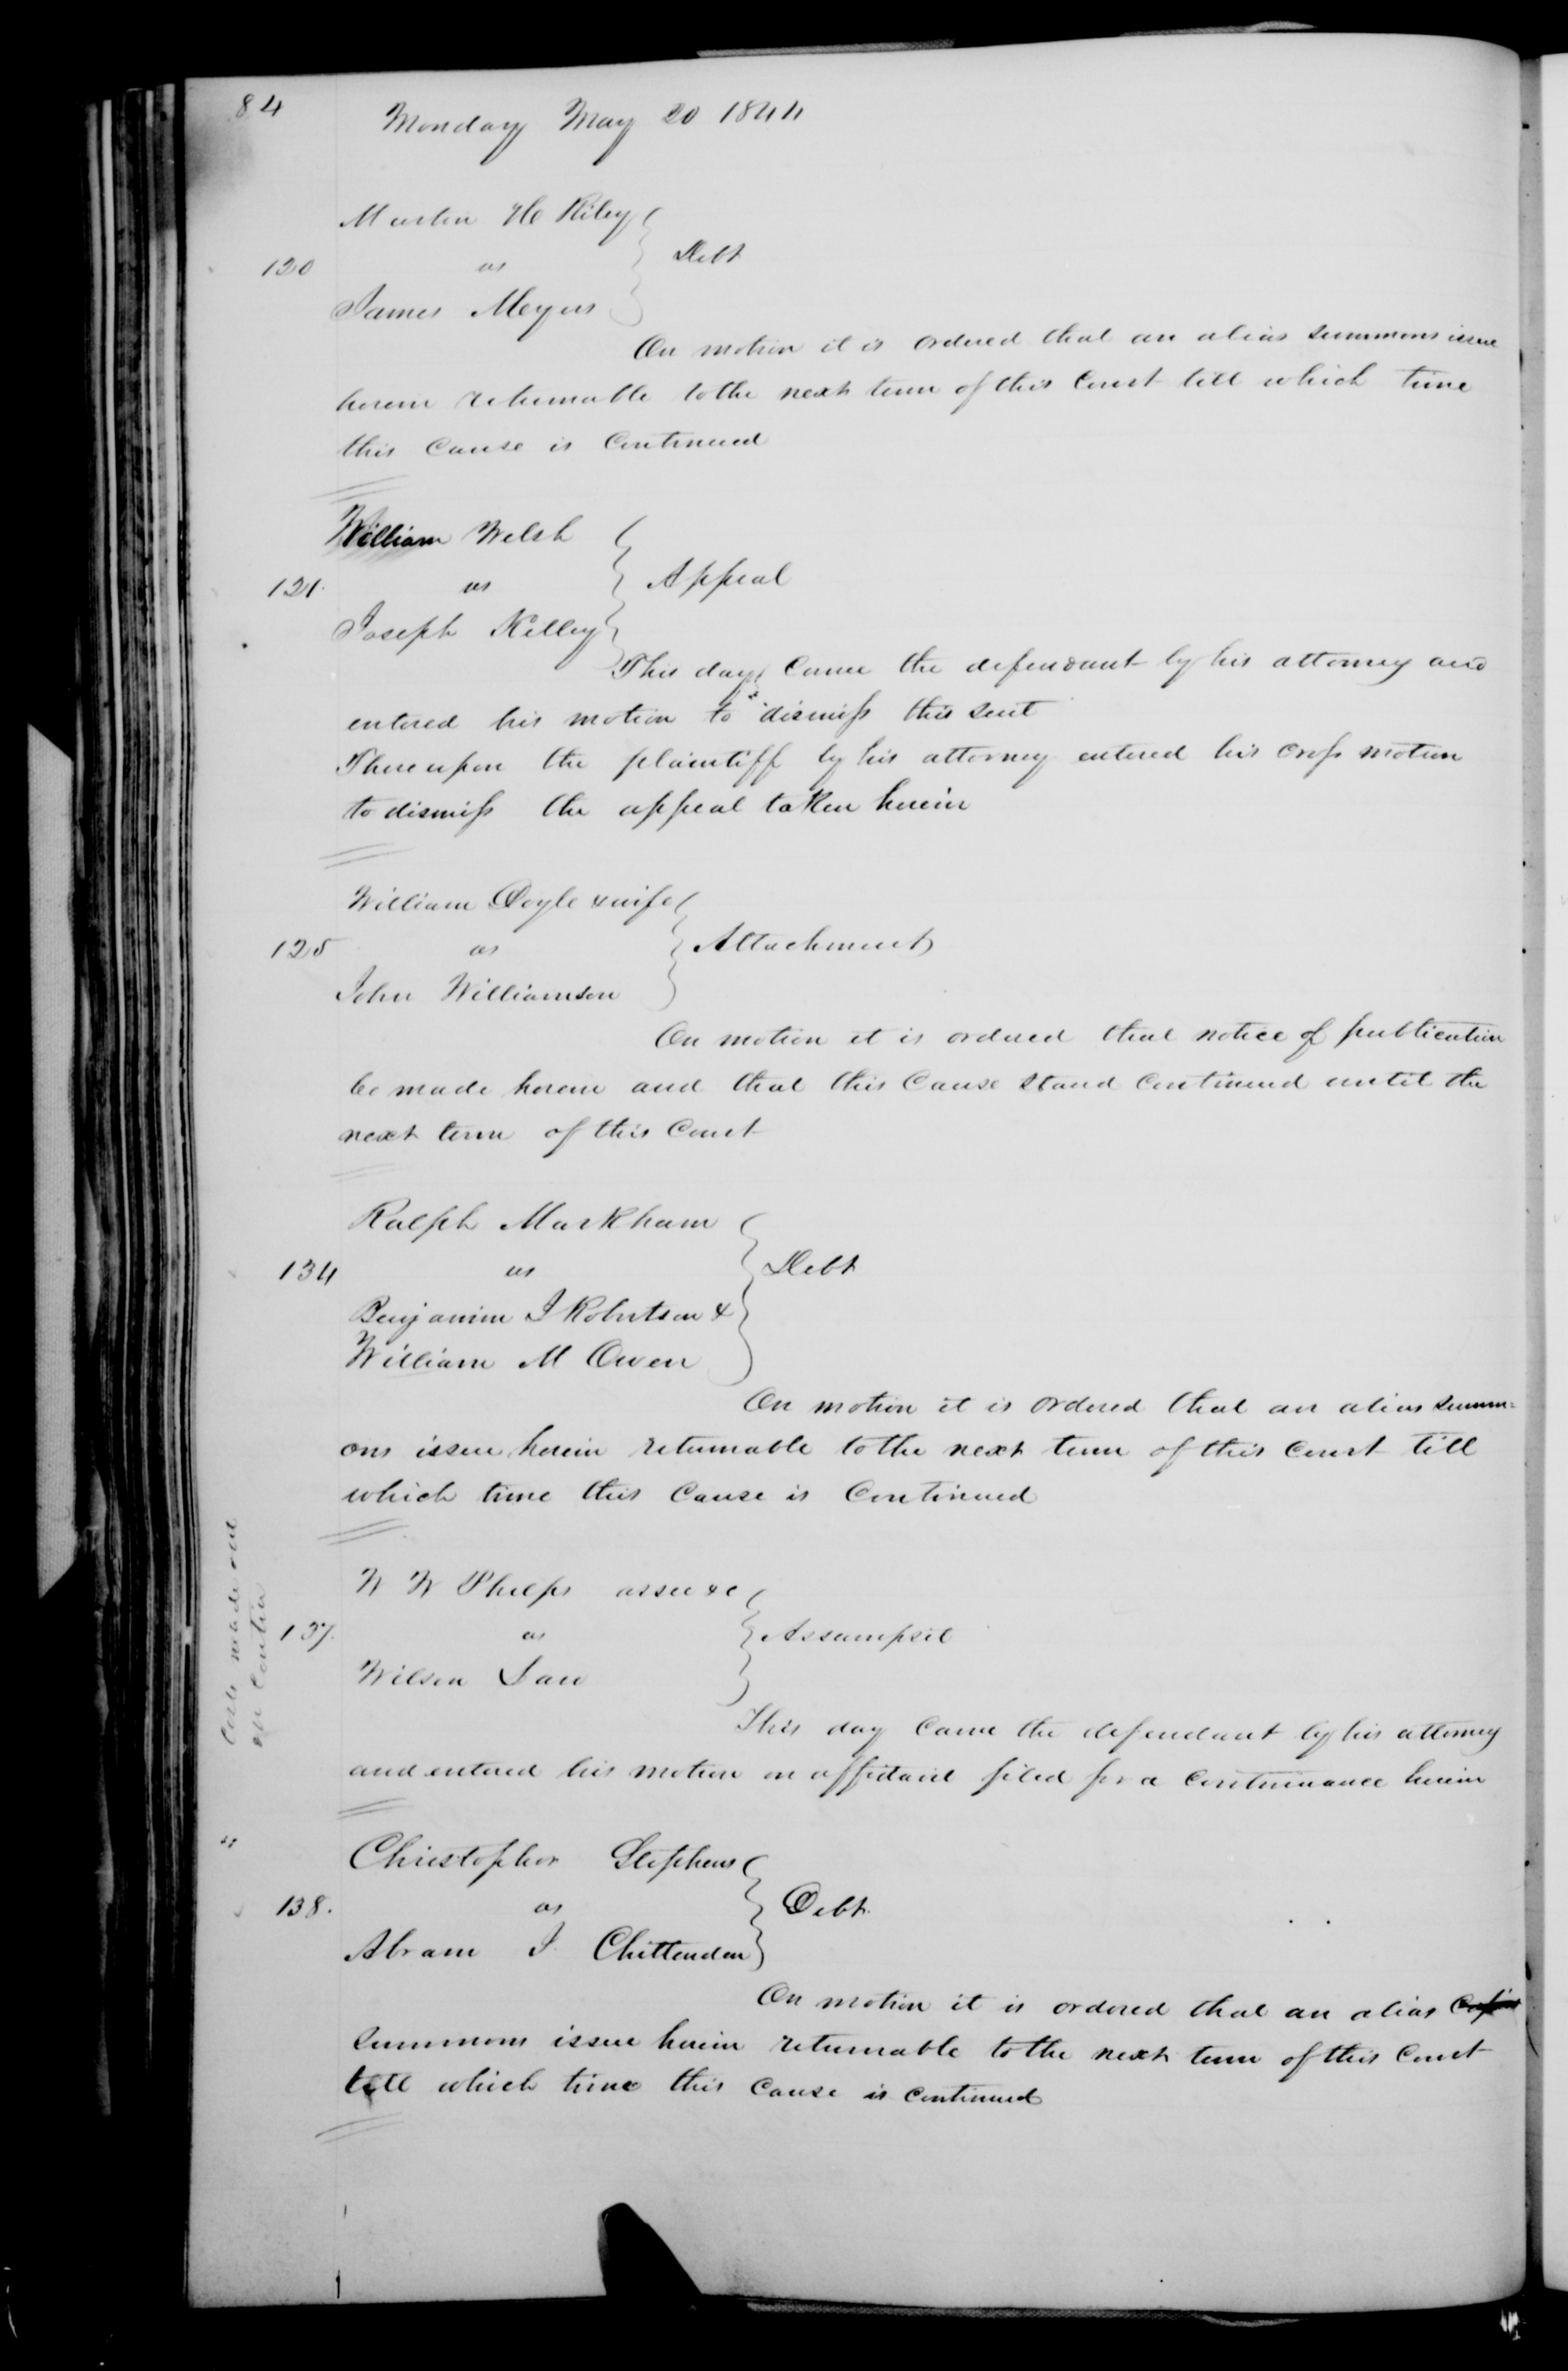 84
Monday May 20 1844
Martin H Riley
120 vs Debt
James Meyers
On motion it is ordered that an alias summons issue
herein returnable to the next term of this Court till which time
this Cause is Continued
William Welsh
121. vs Appeal
Joseph Kelley
This day Came the defendant by his attorney and
entered his motion to dismiss this suit
Thereupon the plaintiff by his attorney entered his cross motion
to dismiss the appeal taken herein
William Doyle & wife
125 vs Attachment
John Williamson
On motion it is ordered that notice of publication
be made herein and that this Cause stand Continued until the
next term of this Court
Ralph Markham
134 vs Debt
Benjamin J Robertson &
William M Owen
On motion it is ordered that an alias summ=
ons issue herein returnable to the next term of this Court till
which time this Cause is Continued
Costs made out
on Contin
W W Phelps assee &c
137. vs Assumpsit
Wilson Law
This day Came the defendant by his attorney
and entered his motion on affidavit filed for a Continuance herein
"
Christopher Stephens
138. vs Debt.
Abram J. Chittenden
On motion it is ordered that an alias
Summons issue herein returnable to the next term of this Court
till which time this Cause is continued